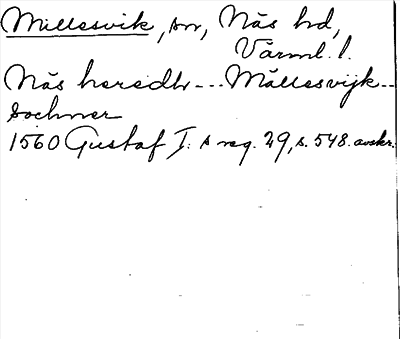 Millesvik, sn, Näs hd,
Värml. l.
Näs heredhr--- Mållesvijk--
sochner
1560 Gustaf I:s reg. 29, s. 548. avskr.